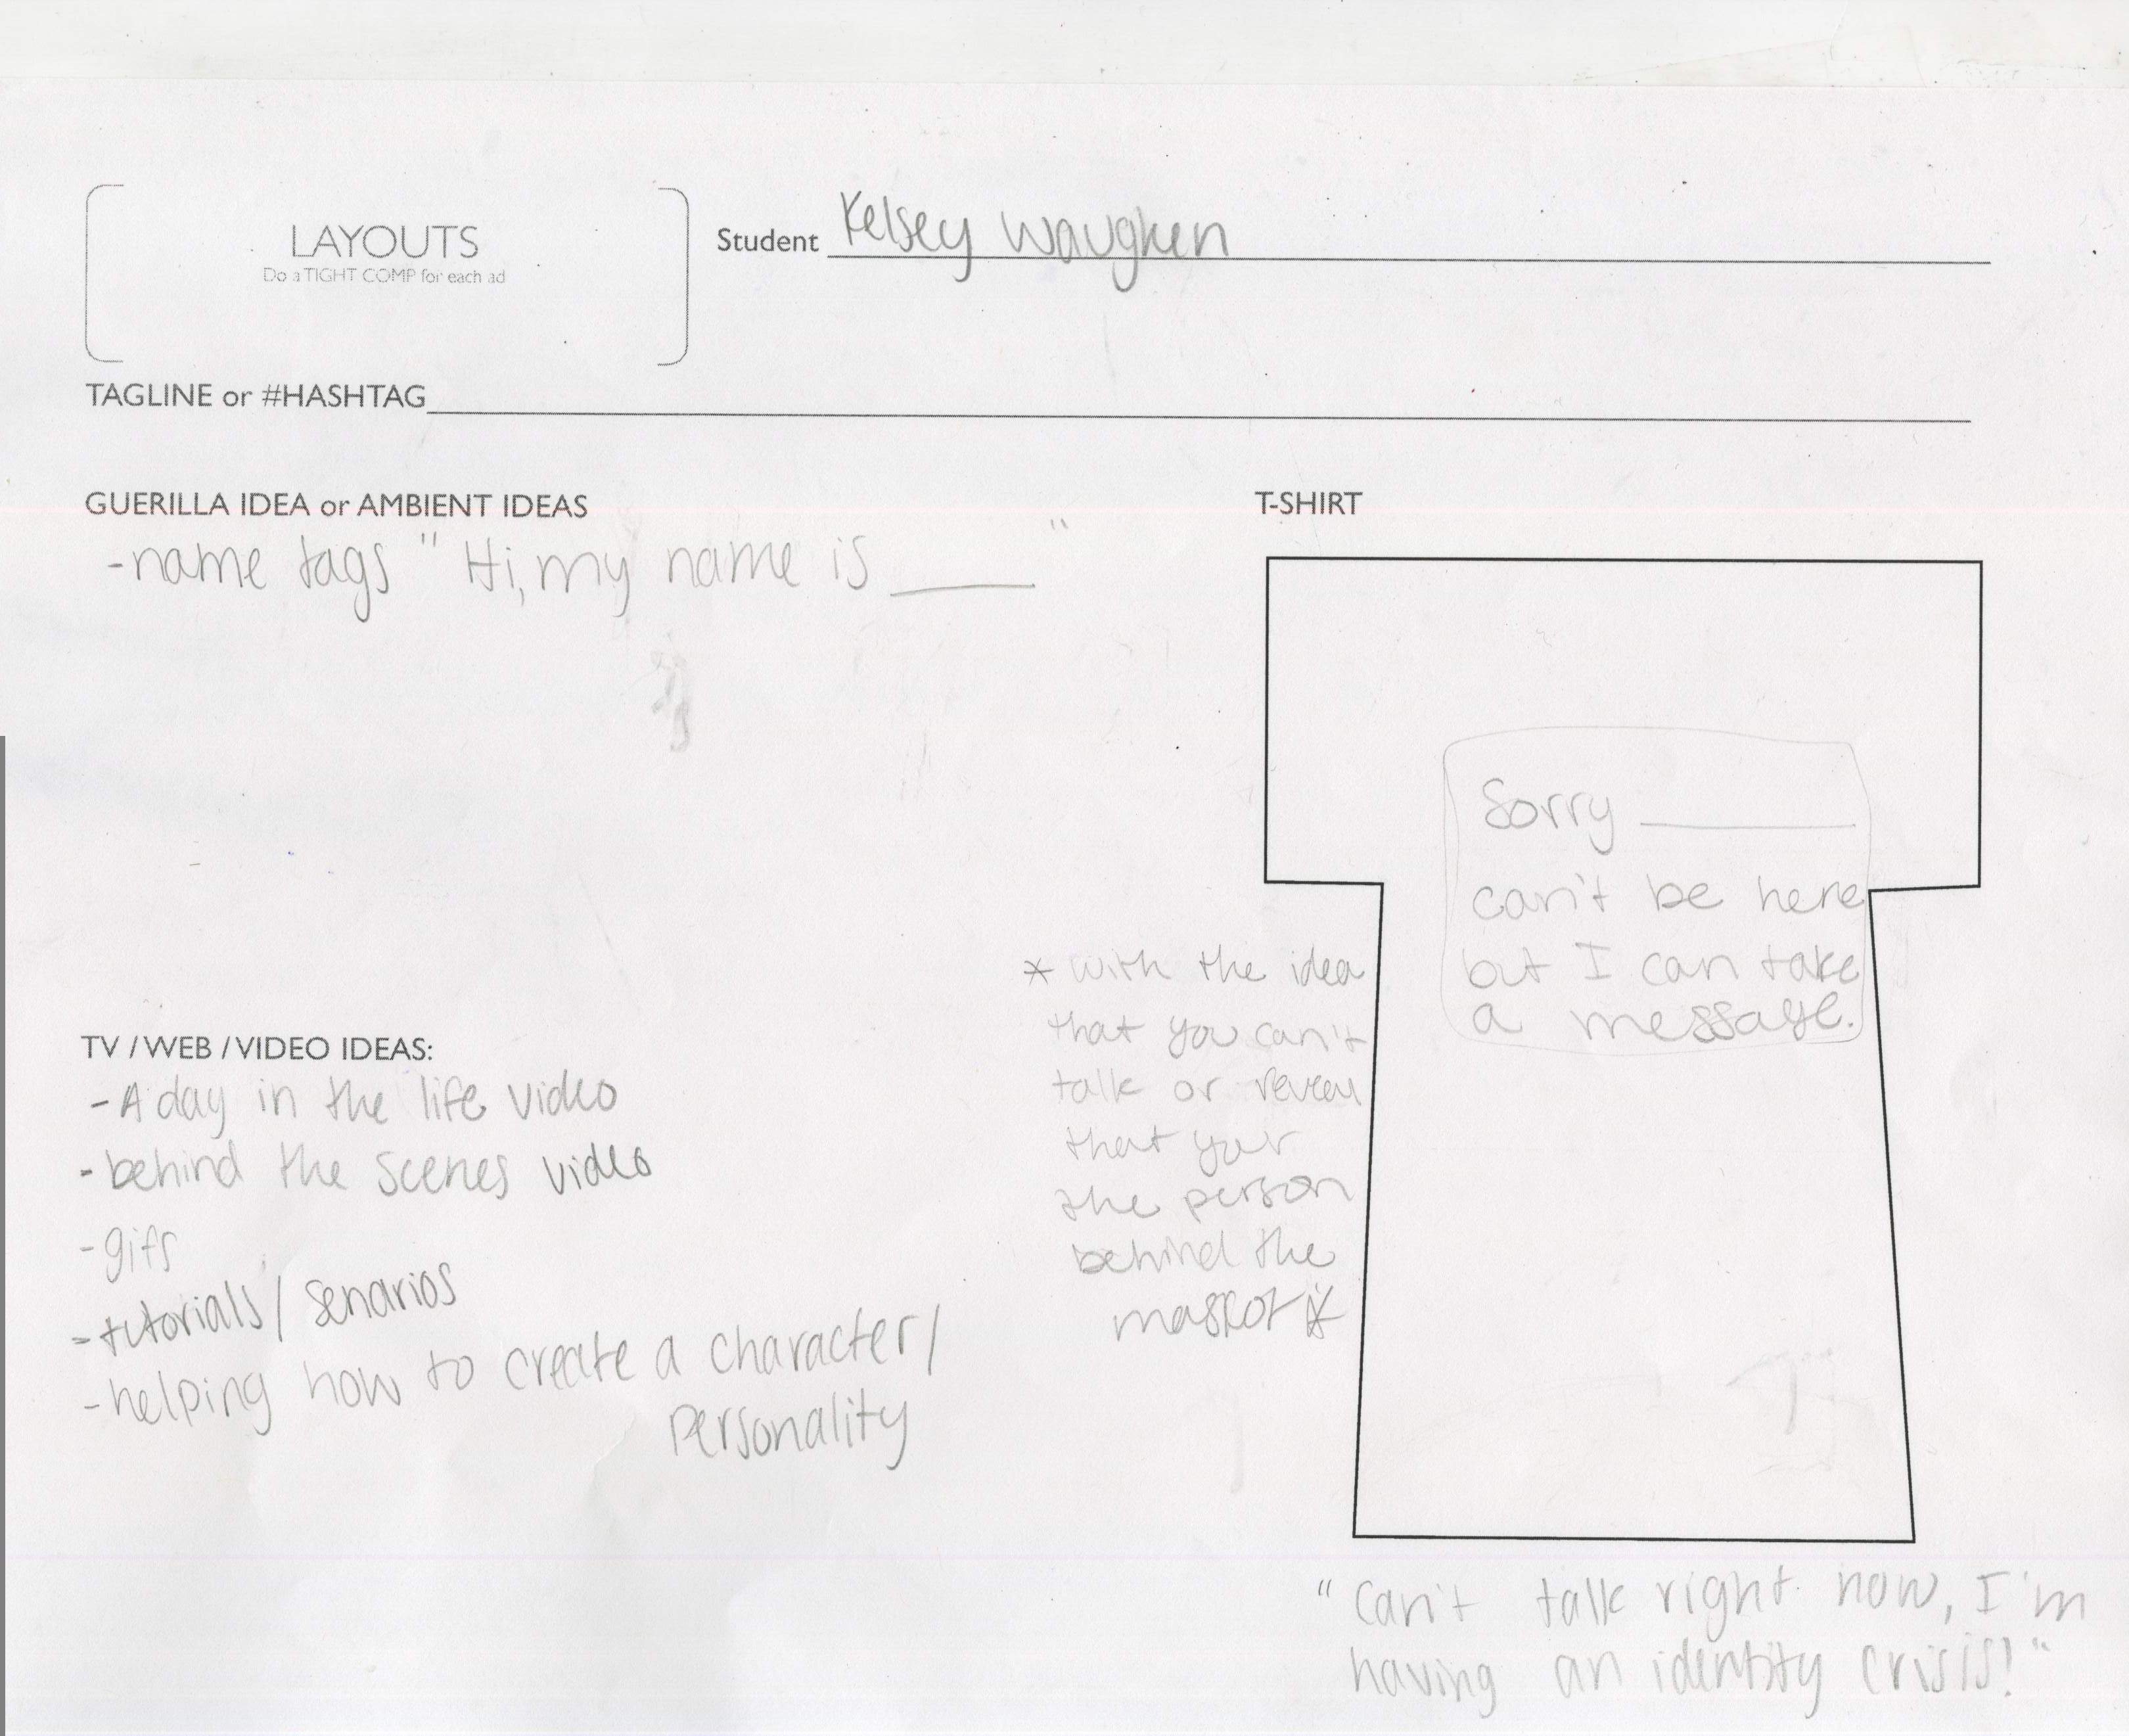 LAYOUTS
Do a TIGHT COMP for each ad
Student Kelsey Waugken
TAGLINE or #HASHTAG
GUERILLA IDEA or AMBIENT IDEAS
-name tags "Hi, my name is ____"
T-SHIRT
Sorry ____
can't be here
but I can take
a message.
* with the idea
that you can't
talk or reveal
that your
the person
behind the
mascot *
TV / WEB / VIDEO IDEAS:
-A day in the life video
-behind the scenes video
-gifs
-tutorials/ senarios
-helping how to create a character/
personality
"Can't talk right now, I'm
having an identity crisis!"